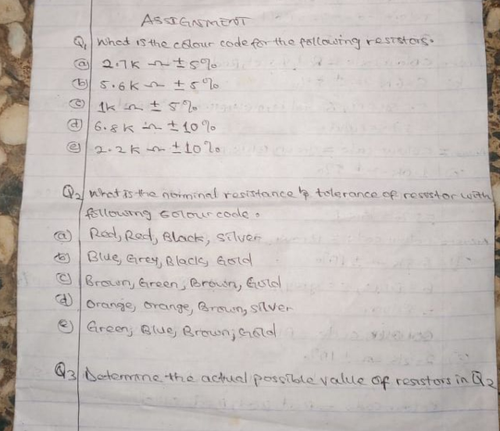 ASSIGNMENT
Q1 What is the colour code for the following resistors.
(a) 2.7K Ω ± 5%
(b) 5.6K Ω ± 5%
(c) 1K Ω ± 5%
(d) 6.8K Ω ± 10%
(e) 2.2K Ω ± 10%
Q2 What is the norminal resistance & tolerance of resistor with
following Colour code.
(a) Red, Red, Black, Silver
(b) Blue, Grey, Black, Gold
(c) Brown, Green, Brown, Gold
(d) Orange, Orange, Brown, Silver
(e) Green, Blue, Brown, Gold
Q3 Determine the actual possible value of resistors in Q2